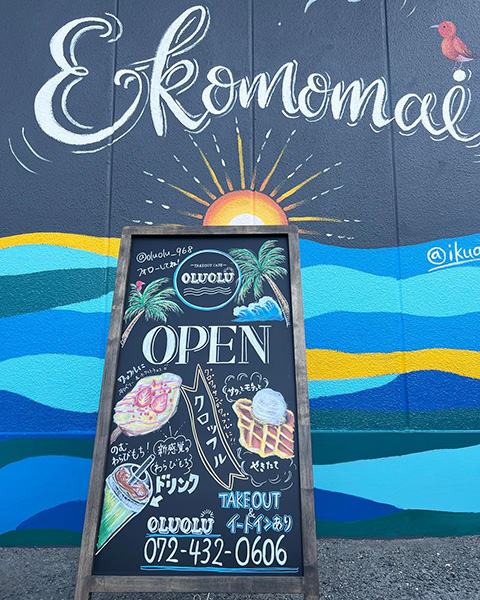 Ekomomai
@ikuo
@oluolu_968
フォローしてね!
TAKEOUT CAFE
OLUOLU
OPEN
クロッフル
サクッとモチっと
やきたて
のむ
わらびもち!
新感覚の
わらびもち
ドリンク
TAKEOUT
&
イートインあり
OLUOLU
072-432-0606